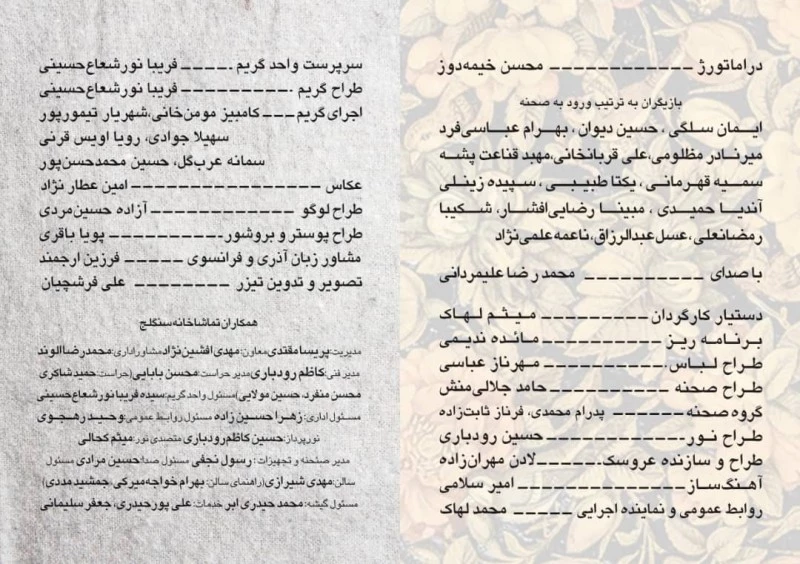 دراماتورژ ------------- محسن خیمه‌دوز
بازیگران به ترتیب ورود به صحنه
ایمان سلگی ، حسین دیوان ، بهرام عباسی‌فرد
میرنادر مظلومی،علی قربانخانی،مهبد قناعت پشه
سمیه قهرمانی ، یکتا طبیبی ، سپیده زینلی
آندیا حمیدی ، مبینا رضایی‌افشار، شکیبا
رمضانعلی، عسل عبدالرزاق،ناعمه علمی‌نژاد
با صدای ----------- محمدرضا علیمردانی
دستیار کارگردان ---------- میثم لهاک
برنامه ریز ------------- مانده ندیمی
طراح لباس ------------ مهرناز عباسی
طراح صحنه ---------- حامد جلالی‌منش
گروه صحنه ------- پدرام محمدی، فرناز ثابت‌زاده
طراح نور ------------- حسین رودباری
طراح و سازنده عروسک ------ لادن مهران‌زاده
آهنگ‌ساز ------------- امیر سلامی
روابط عمومی و نماینده اجرایی ----- محمد لهاک
سرپرست واحد گریم ----- فریبا نورشعاع‌حسینی
طراح گریم ---------- فریبا نورشعاع‌حسینی
اجرای گریم --- کامبیز مومن‌خانی،شهریار تیمورپور
سهیلا جوادی، رویا اویس قرنی
سمانه عرب‌گل، حسین محمدحسن‌پور
عکاس ----------------- امین عطار نژاد
طراح لوگو ------------- آزاده حسین‌مردی
طراح پوستر و بروشور ----------- پویا باقری
مشاور زبان آذری و فرانسوی ----- فرزین ارجمند
تصویر و تدوین تیزر -------- علی فرشچیان
همکاران تماشاخانه سنگلج
مدیریت: پریسا مقتدی معاون: مهدی افشین نژاد مشاور اداری: محمدرضا الوند
مدیر فنی: کاظم رودباری مدیر حراست: محسن بابایی (حراست: حمید شاکری
محسن منفرد، حسین مولایی) مسئول واحد گریم: سیده فریبا نورشعاع حسینی
مسئول اداری: زهرا حسین زاده مسئول روابط عمومی: وحید رهجوی
نورپرداز: حسین کاظم رودباری متصدی نور: میثم کحالی
مدیر صحنه و تجهیزات : رسول نجفی مسئول صدا: حسین مرادی مسئول
سالن: مهدی شیرازی (راهنمای سالن: بهرام خواجه‌میرکی، جمشید مددی)
مسئول گیشه: محمد حیدری ابر خدمات: علی پورحیدری، جعفر سلیمانی